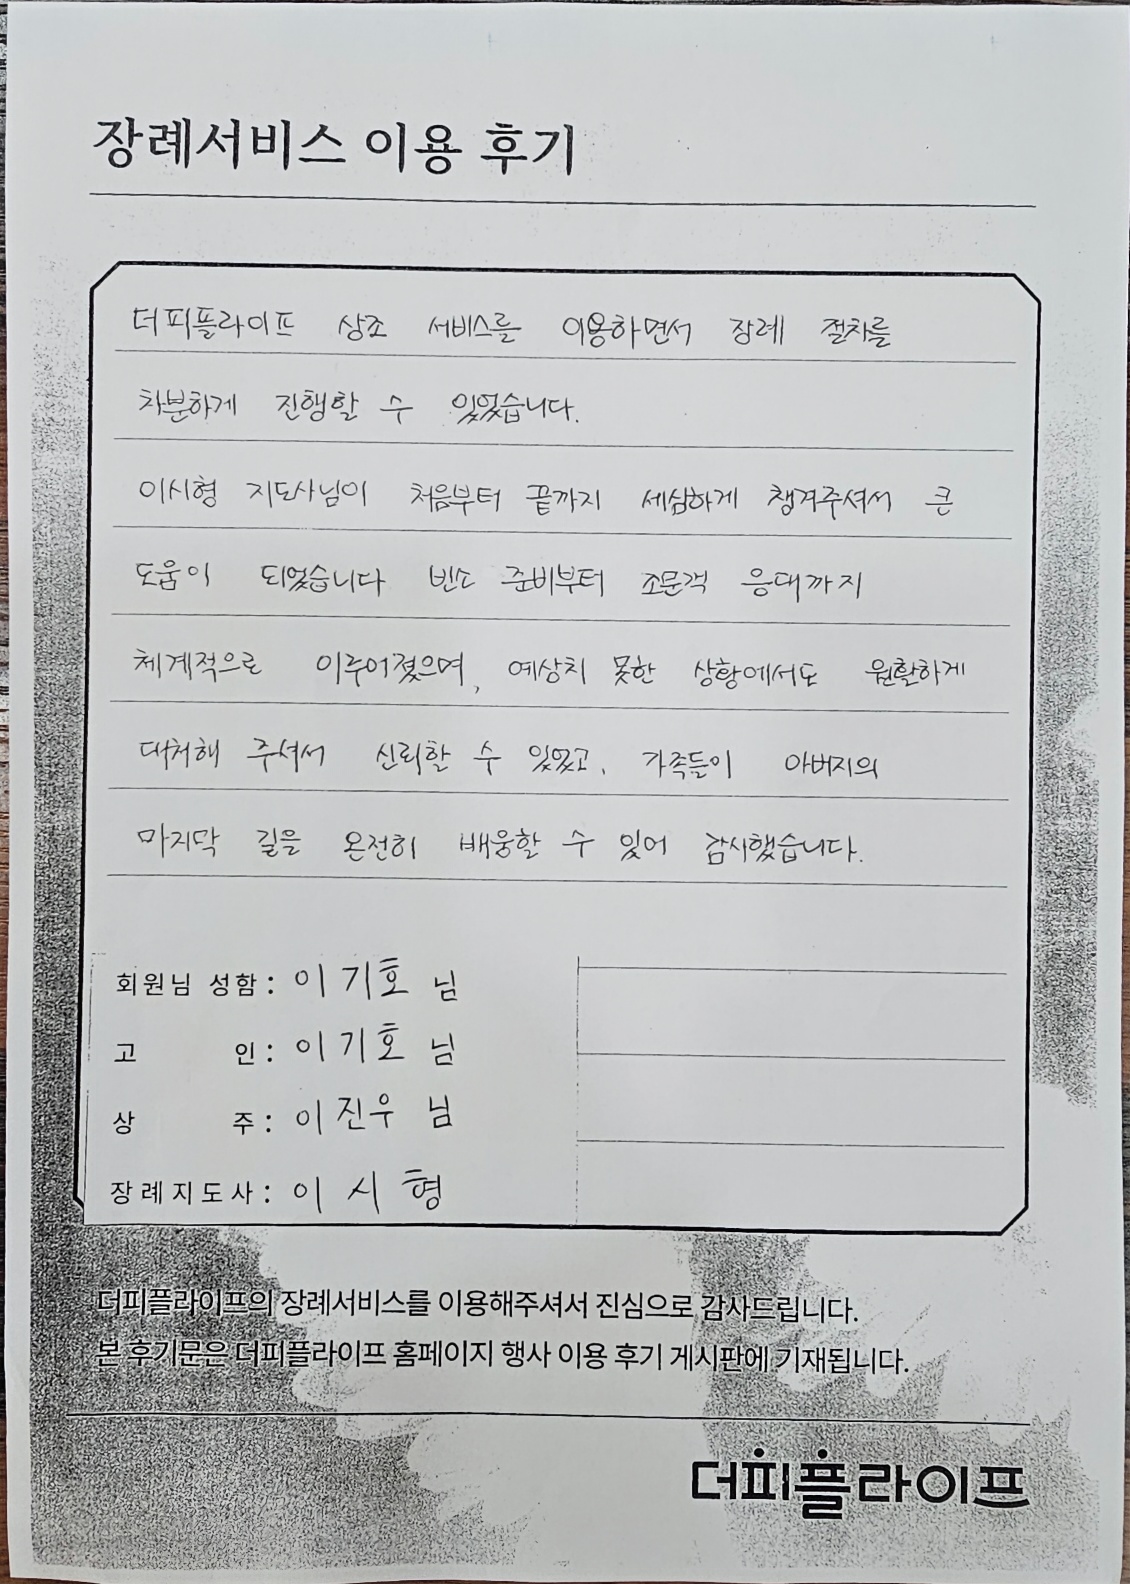 장례서비스 이용 후기
더피플라이프 상조 서비스를 이용하면서 장례 절차를
차분하게 진행할 수 있었습니다.
이시형 지도사님이 처음부터 끝까지 세심하게 챙겨주셔서 큰
도움이 되었습니다 빈소 준비부터 조문객 응대까지
체계적으로 이루어졌으며, 예상치 못한 상황에서도 원활하게
대처해 주셔서 신뢰할 수 있었고, 가족들이 아버지의
마지막 길을 온전히 배웅할 수 있어 감사했습니다.
회원님 성함: 이기호 님
고 인: 이기호 님
상 주: 이진우 님
장례지도사: 이시형
더피플라이프의 장례서비스를 이용해주셔서 진심으로 감사드립니다.
본 후기문은 더피플라이프 홈페이지 행사 이용 후기 게시판에 기재됩니다.
더피플라이프